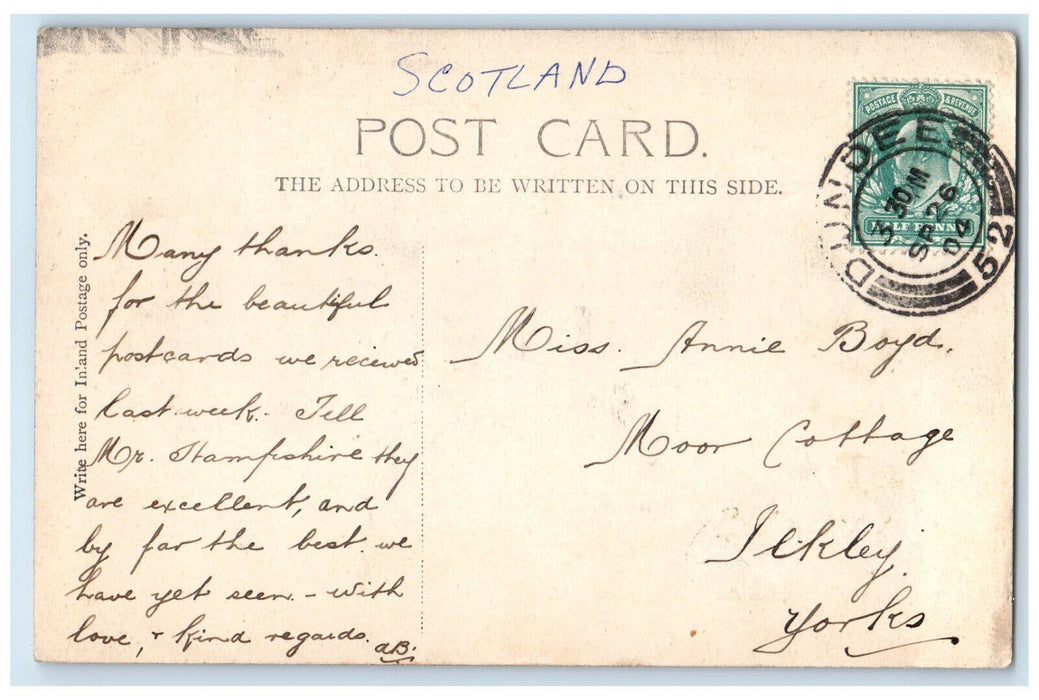 SCOTLAND
POST CARD.
THE ADDRESS TO BE WRITTEN ON THIS SIDE.
POSTAGE & REVENUE
HALF PENNY
DUNDEE
3 30 M
SP 26
04
52
Write here for Inland Postage only.
Many thanks.
for the beautiful
postcards we recieved
last week. Tell
Mr. Hampshire they
are excellent, and
by far the best we
have yet seen. - With
love, & kind regards.
aB.
Miss. Annie Boyd.
Moor Cottage
Ilkley.
Yorks